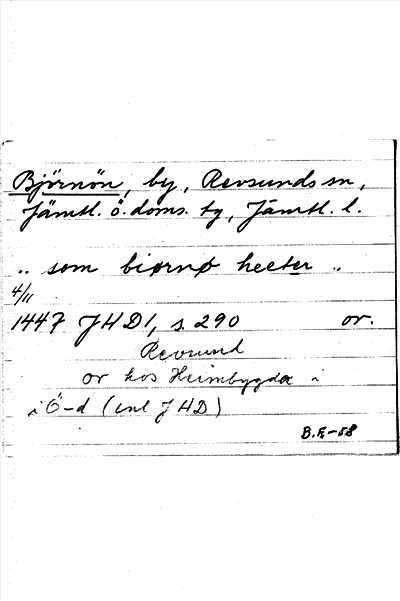 Björnön, by, Revsunds sn,
Jämtl. ö. doms. tg, Jämtl. l.
.. som biørnø heeter ..
4/11
1447 JHD1, s. 290 or.
Revsund
or hos Heimbygda i
i Ö-d (enl JHD)
B.E-58